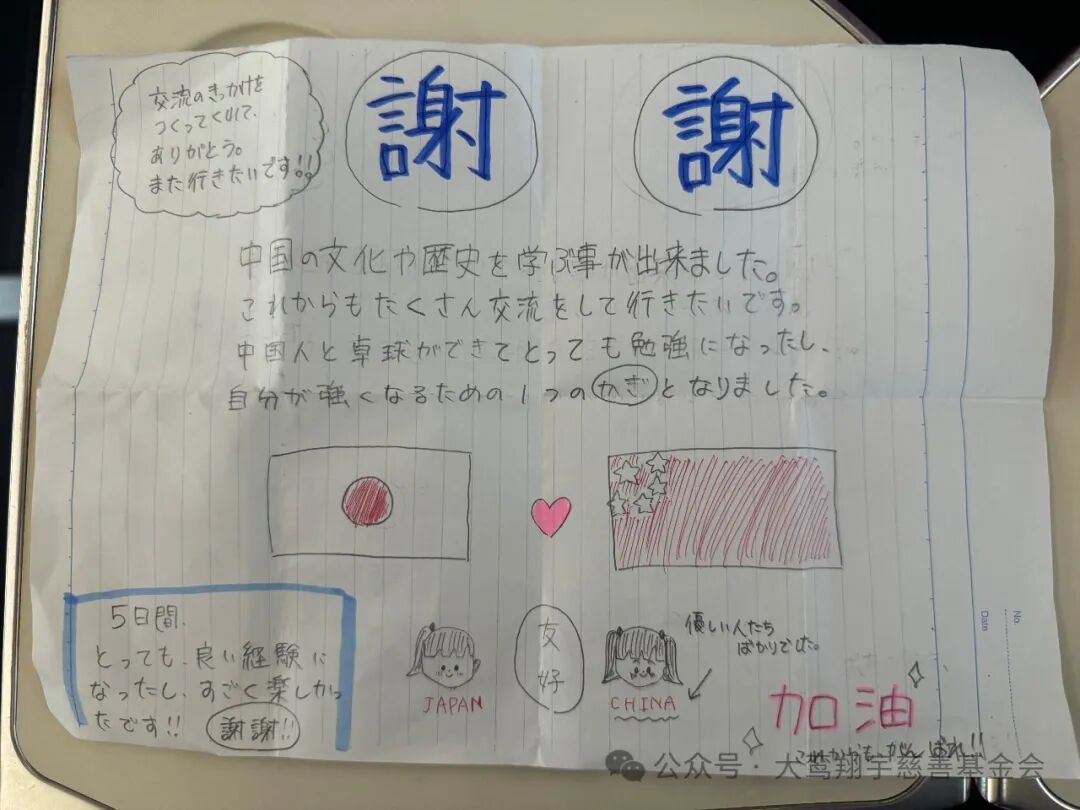 交流のきっかけを
つくってくれて、
ありがとう。
また行きたいです!!
謝 謝
中国の文化や歴史を学ぶ事が出来ました。
これからもたくさん交流をして行きたいです。
中国人と卓球ができてとっても勉強になったし、
自分が強くなるための1つのかぎとなりました。
5日間、
とっても、良い経験に
なったし、すごく楽しかっ
たです!!
謝謝!!
JAPAN
友好
CHINA
優しい人たち
ばかりでした。
加油
これからも がんばれ!!
No.
Date
公众号·犬鸾翔宇慈善基金会